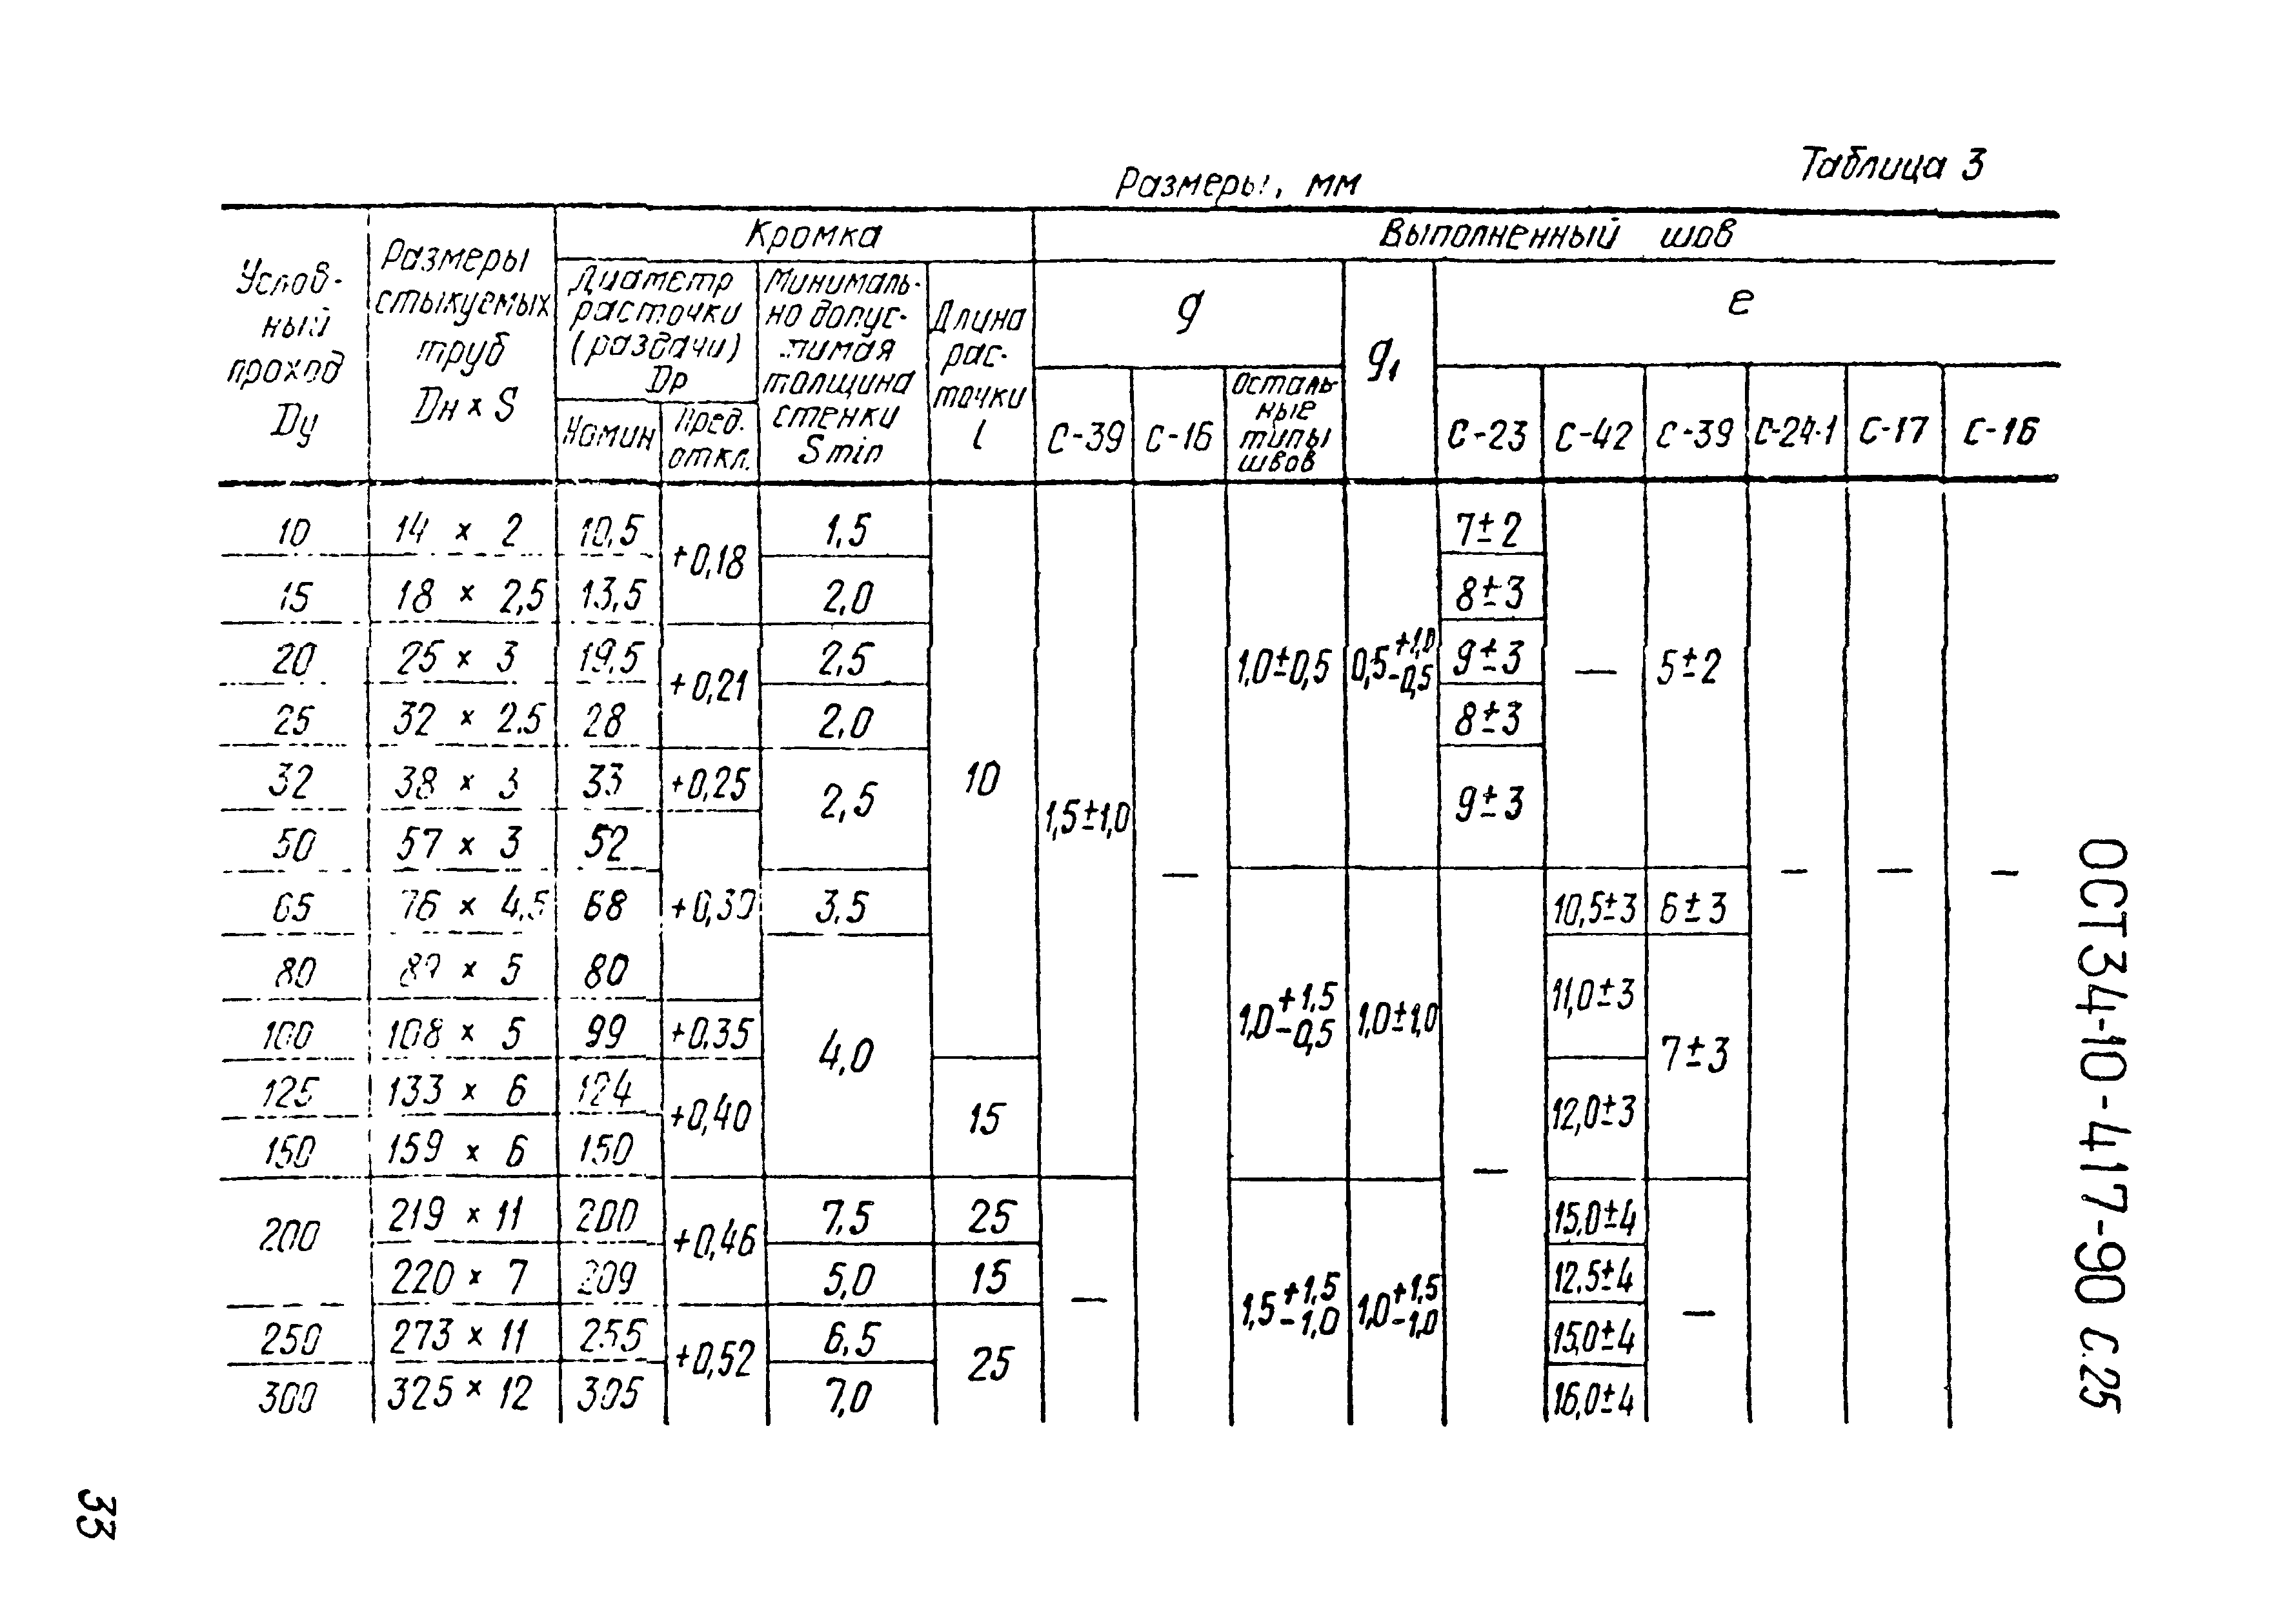 Таблица 3
Размеры, мм
Условный проход Dу | Размеры стыкуемых труб Dн × S | Кромка | Выполненный шов
Диаметр расточки (раздачи) Dр | Минимально допустимая толщина стенки S min | Длина расточки l | g | g₁ | e
Номин | Пред. откл. | С-39 | С-16 | Остальные типы швов | С-23 | С-42 | С-39 | С-24-1 | С-17 | С-16
10 | 14 × 2 | 10,5 | +0,18 | 1,5 | 10 | 1,5±1,0 | — | 1,0±0,5 | 0,5 +1,0 -0,5 | 7±2 | — | 5±2 | — | — | —
15 | 18 × 2,5 | 13,5 | 2,0 | 8±3
20 | 25 × 3 | 19,5 | +0,21 | 2,5 | 9±3
25 | 32 × 2.5 | 28 | 2,0 | 8±3
32 | 38 × 3 | 33 | +0,25 | 2,5 | 9±3
50 | 57 × 3 | 52 | +0,30
65 | 76 × 4,5 | 68 | 3,5 | 1,0 +1,5 -0,5 | 1,0±1,0 | — | 10,5±3 | 6±3
80 | 89 × 5 | 80 | 4,0 | 11,0±3 | 7±3
100 | 108 × 5 | 99 | +0,35
125 | 133 × 6 | 124 | +0,40 | 15 | 12,0±3
150 | 159 × 6 | 150
200 | 219 × 11 | 200 | +0,46 | 7,5 | 25 | — | 1,5 +1,5 -1,0 | 1,0 +1,5 -1,0 | 15,0±4 | —
220 × 7 | 209 | 5,0 | 15 | 12,5±4
250 | 273 × 11 | 255 | +0,52 | 6,5 | 25 | 15,0±4
300 | 325 × 12 | 305 | 7,0 | 16,0±4
ОСТ 34-10-417-90 С.25
33